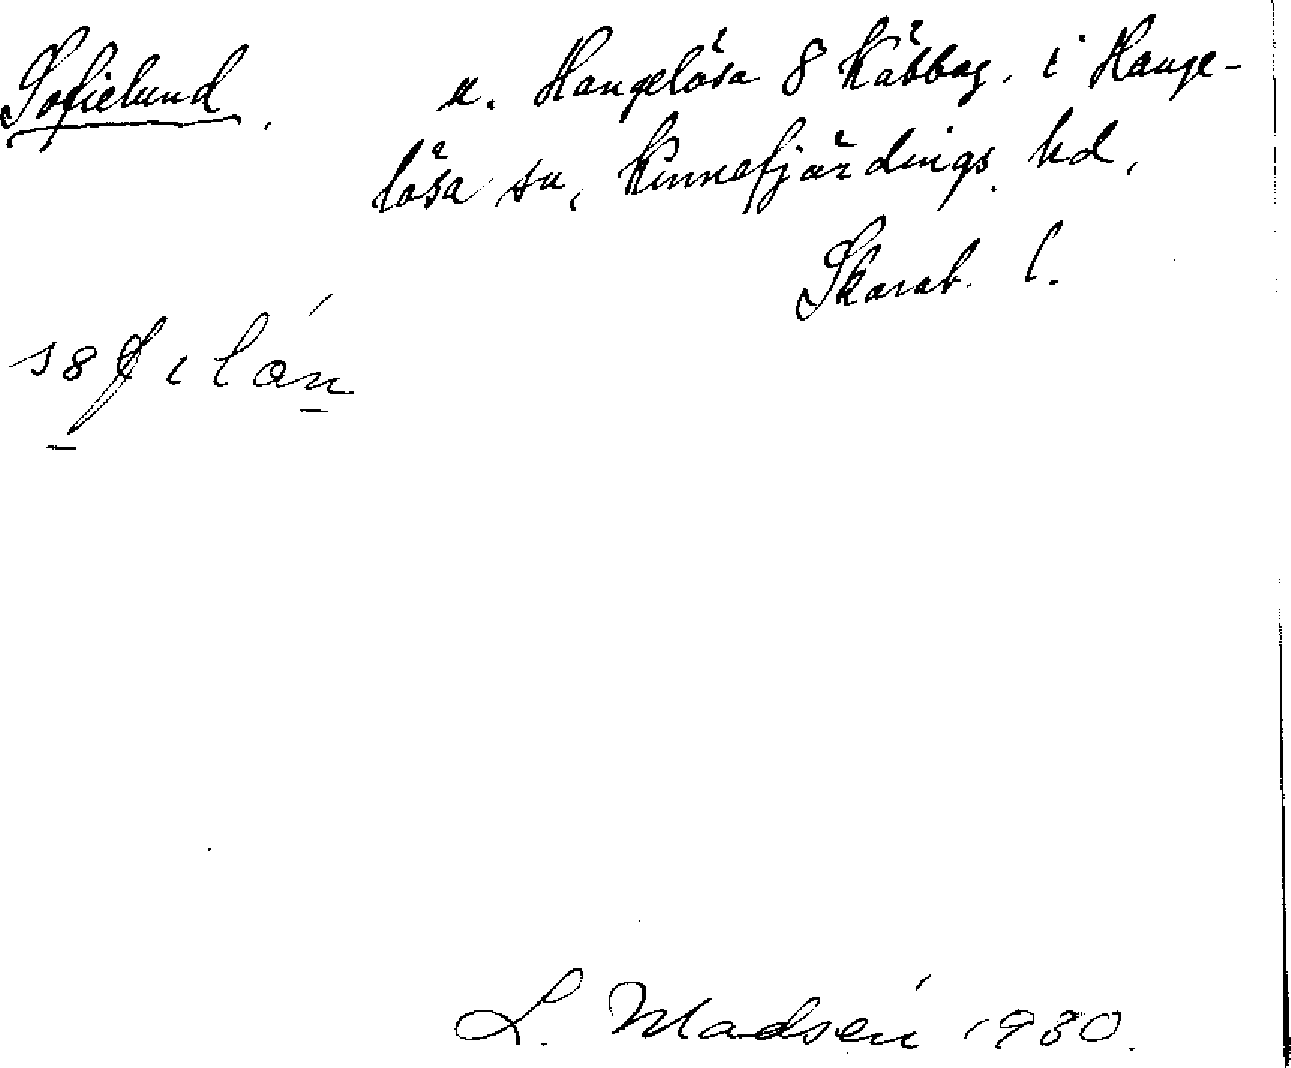 Sofielund. u. Hangelösa 8 Kåbbag. i Hange-
lösa sn, Kinnefjärdings hd,
Skarab. l.
L. Madsén 1930.